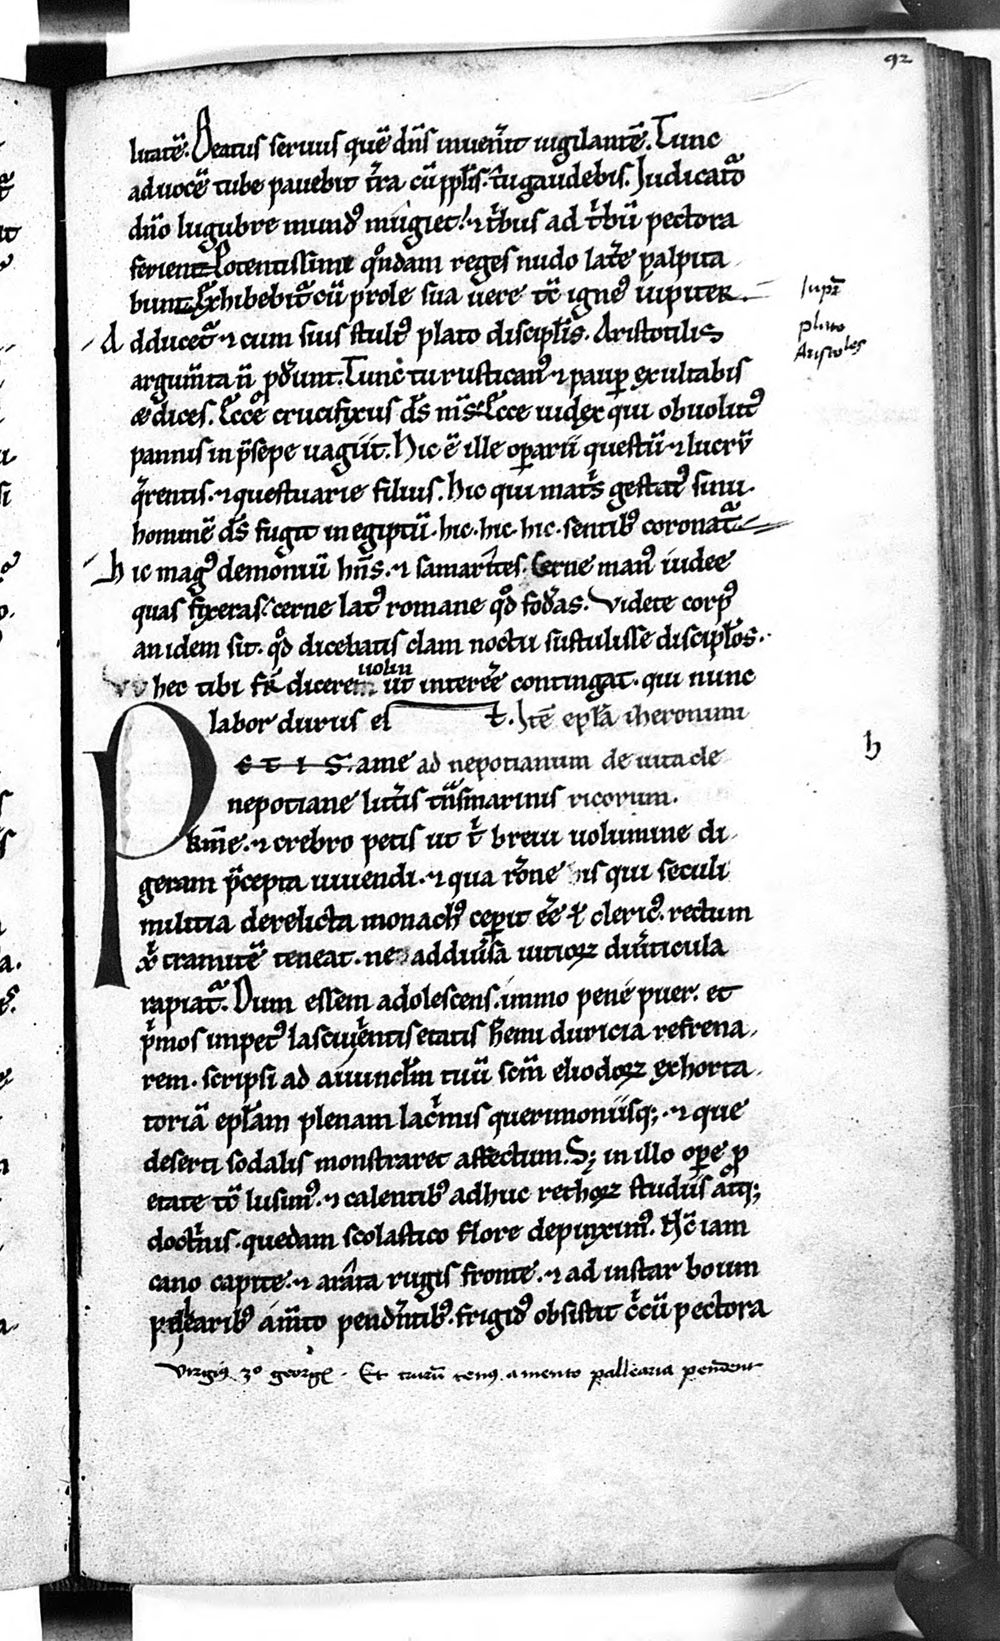 92
litatē. Beatus seruus quē dn̄s inuen̄it uigilantē. Tunc
ad uocē tube pauebit t̄ra cū ppl̄is. tū gaudebis. Iudicat͛o
dn̄o lugubre mundꝰ mugiet. ⁊ t͛bus ad t͛bū pectora
ferient. Potentissimi qͦndam reges nudo lat̄e palpita
bunt. Exhibebit͛ cū prole sua uere tc̄ igneꝰ iupiter.
Adducet͛ ⁊ cum suis stultꝰ plato discipl̄is. Aristotilis
argum̄ta n̄ ꝓderunt. Tunc tu rusticanꝰ ⁊ paup̱ exultabis
& dices. Ecce crucifixus ds̄ ms̄. Ecce iudex qui obuolutꝰ
pannis in p̄sepe uagiit. Hic ē ille op̱arii questū ⁊ lucrū
q̄rentis. ⁊ questuarie filius. hic qui mat͛s gestatꝰ sinu.
hominē ds̄ fugit in egiptū. hic. hic. hic. sentibꝰ coronat͛.
hic magꝰ demoniū hn̄s. ⁊ samarites. Cerne manꝰ iudee
quas fixeras. cerne latꝰ romane qͦd fod̄as. Videte corpꝰ
an idem sit. qͦd dicebatis clam noctu sustulisse discipl̄os.
hec tibi fr̄ dicerem ut interee contingat. qui nunc
uolui
labor durus est. Itē epl̄a iheronimi
PETIS. a me ad nepotianum de uita cle
nepotiane litt̄is tn̄smarinis ricorum.
km̄e. ⁊ crebro petis ut t͛ breui uolumine di
geram p̄cepta uiuendi. ⁊ qua rōne his qui seculi
militia derelicta monachꝰ cep̱it eē ł clericꝰ. rectum
x͛ tramitē teneat. ne ad diuersa uitioꝝ diu̅ticula
rapiat͛. Dum essem adolescens. immo pene puer. et
p͛mos impetꝰ lasciuientis etatis h̄emi duricia refrena
rem. scripsi ad auuncl̄m tuū scm̄ eliodoꝝ exhorta
toriā epl̄am plenam lac͛mis querimoniisqꝫ. ⁊ que
deserti sodalis monstraret affectum. Sꝫ in illo op̱e ꝓ
etate tc̄ lusimꝰ. ⁊ calentibꝰ adhuc rethoꝝ studiis atqꝫ
doct͛nis. quedam scolastico flore depinximꝰ. Nc̄ iam
cano capite. ⁊ arata rugis fronte. ⁊ ad instar boum
palearibꝰ a m̄to pendentibꝰ. frigidꝰ obsistit c͛cū pectora
Virgiꝰ 3º georgͥ. Et crurū tenus a mento pallearia pendent
Iupr̄
plato
Aristoles
h